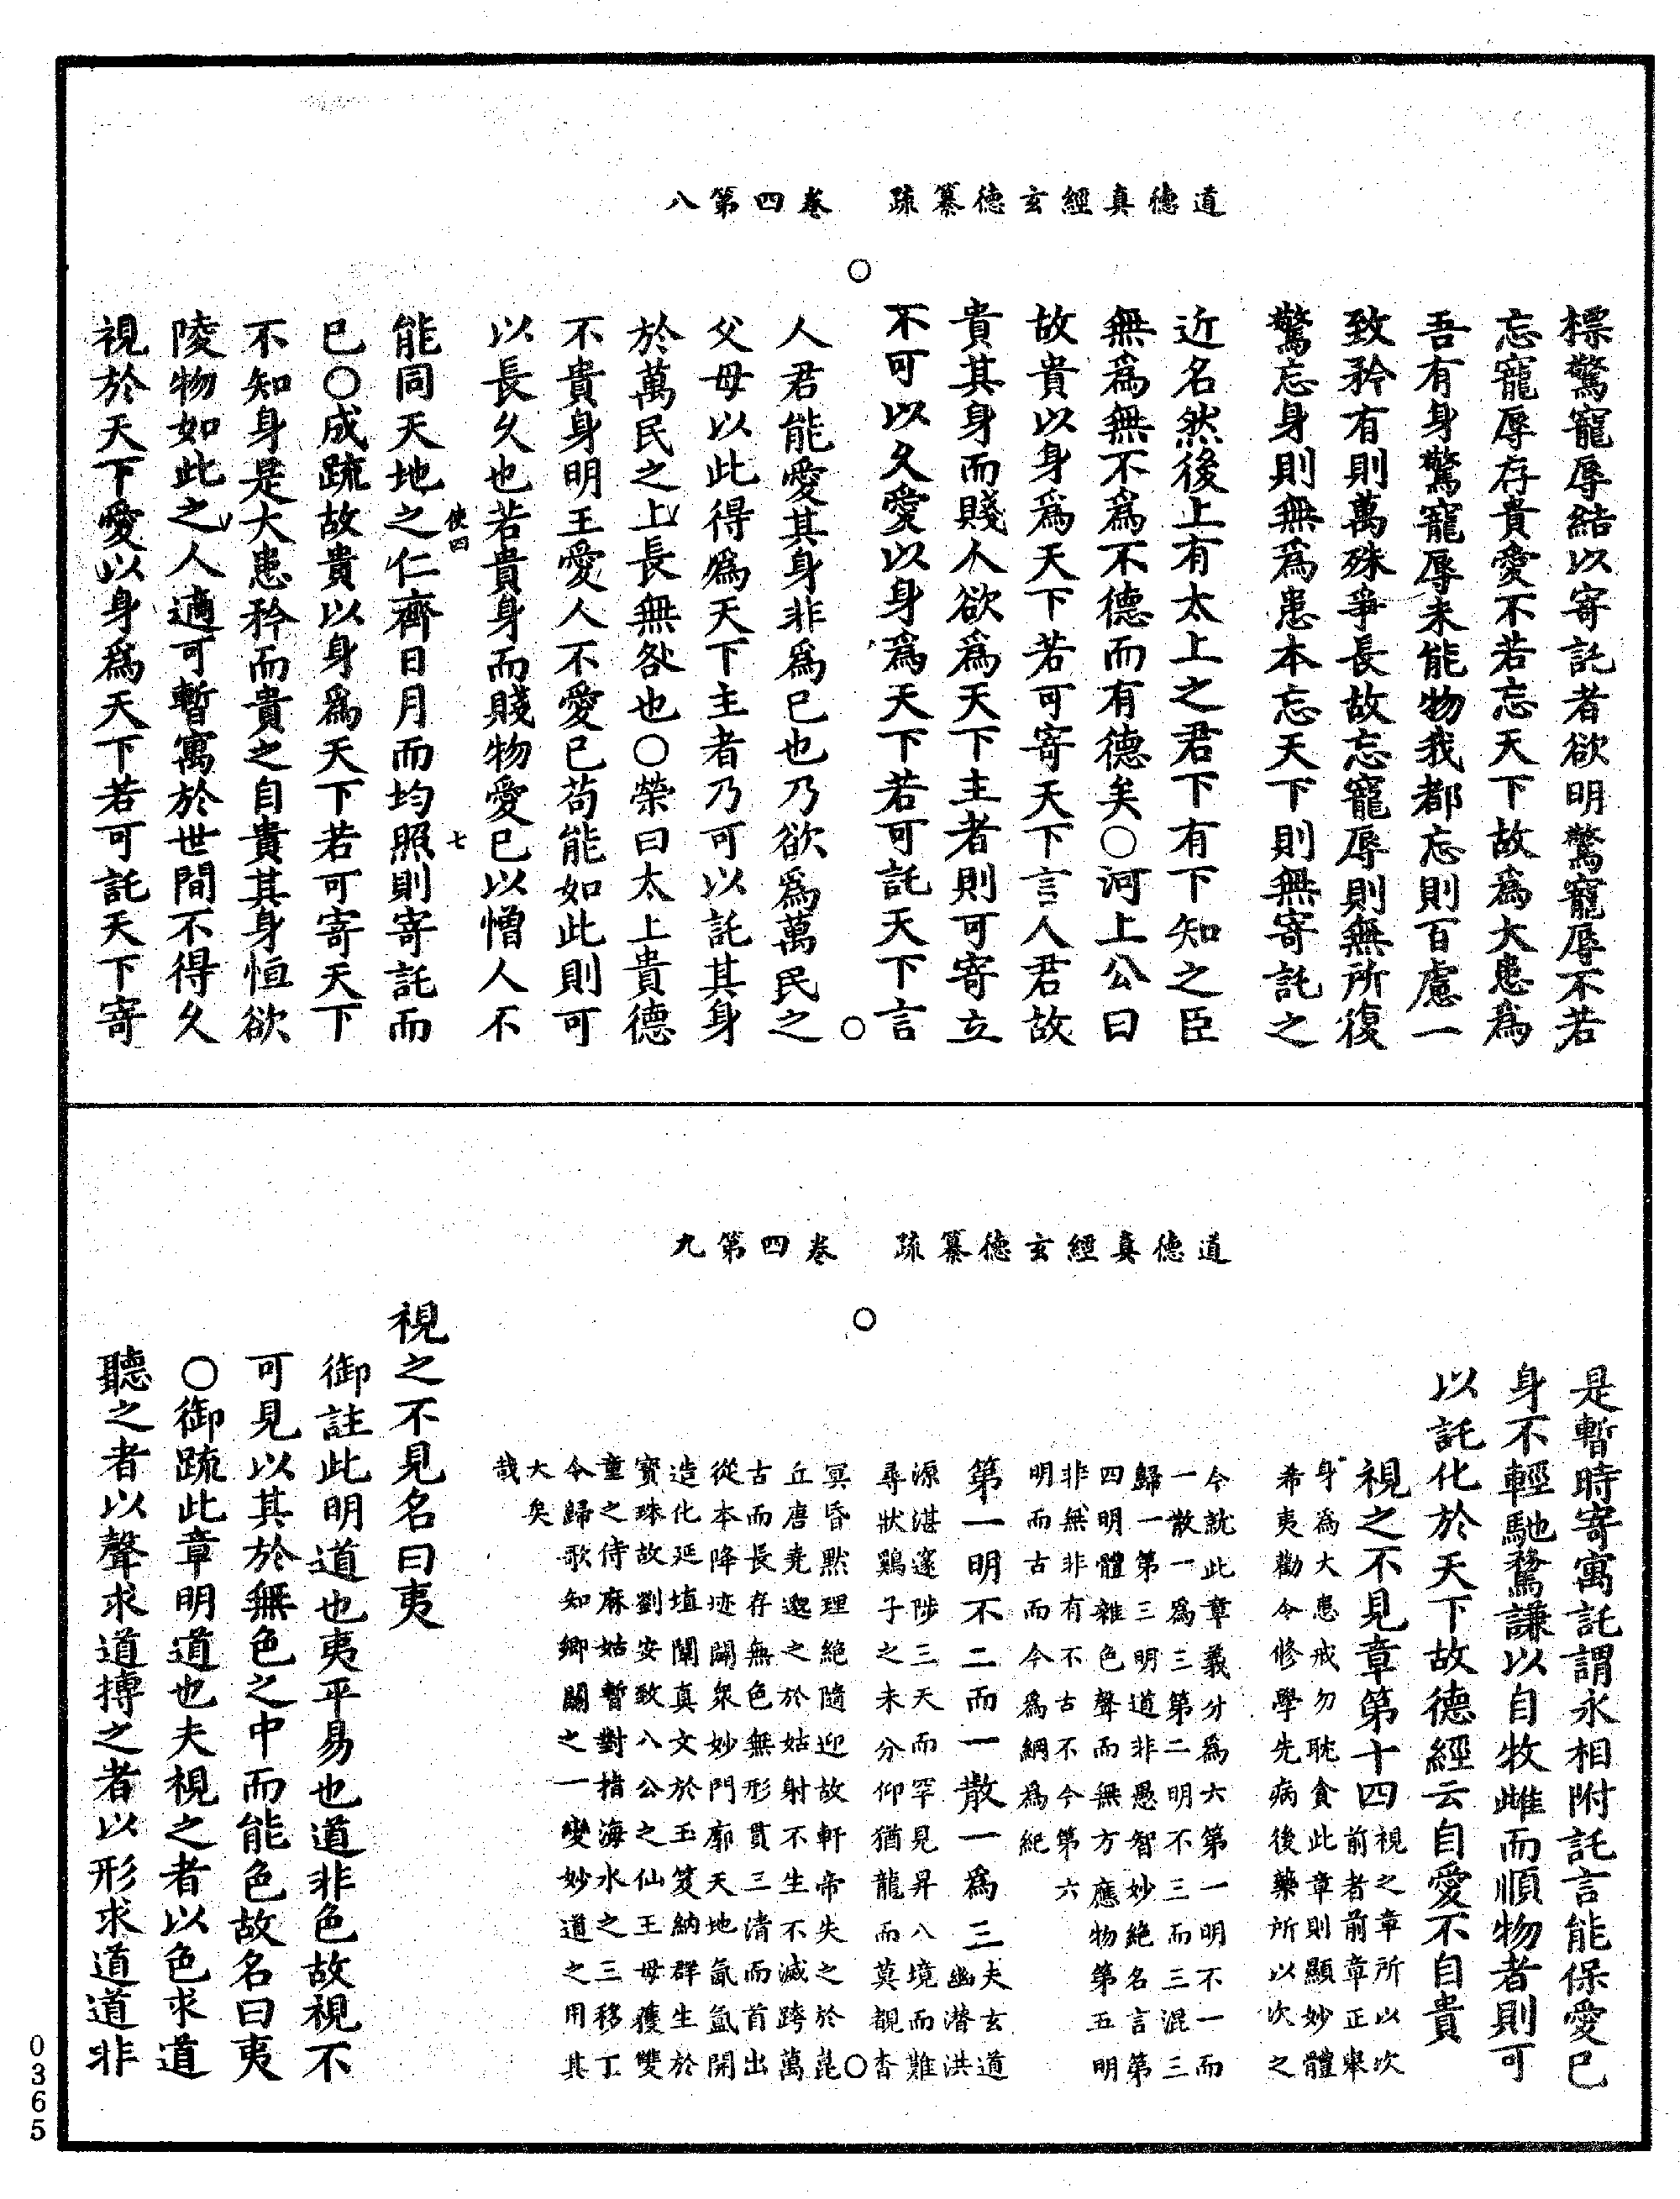 道德真經玄德纂疏　卷四第八
標驚寵辱結以寄託者欲明驚寵辱不若
忘寵辱存貴愛不若忘天下故為大患為
吾有身驚寵辱未能物我都忘則百慮一
致矜有則萬殊爭長故忘寵辱則無所復
驚忘身則無為患本忘天下則無寄託之
近名然後上有太上之君下有下知之臣
無為無不為不德而有德矣〇河上公曰
故貴以身為天下若可寄天下言人君故
貴其身而賤人欲為天下主者則可寄立
不可以久愛以身為天下若可託天下言
人君能愛其身非為已也乃欲為萬民之
父母以此得為天下主者乃可以託其身
於萬民之上長無咎也〇榮曰太上貴德
不貴身明王愛人不愛已苟能如此則可
以長久也若貴身而賤物愛已以憎人不
使四　七
能同天地之仁齊日月而均照則寄託而
已〇成疏故貴以身為天下若可寄天下
不知身是大患矜而貴之自貴其身恒欲
陵物如此之人適可暫寓於世間不得久
視於天下愛以身為天下若可託天下寄
道德真經玄德纂疏　卷四第九
是暫時寄寓託謂永相附託言能保愛已
身不輕馳騖謙以自牧雌而順物者則可
以託化於天下故德經云自愛不自貴
視之不見章第十四
視之章所以次
前者前章正舉
身為大患戒勿耽貪此章則顯妙體
希夷勸令修學先病後藥所以次之
今就此章義分為六第一明不一而
一散一為三第二明不三而三混三
歸一第三明道非愚智妙絶名言第
四明體雜色聲而無方應物第五明
非無非有不古不今第六
明而古而今為綱為紀
第一明不二而一散一為三
夫玄道
幽潛洪
源湛邃陟三天而罕見昇八境而難
尋狀鷄子之未分仰猶龍而莫覩杳
冥昏默理絶隨迎故軒帝失之於崑
丘唐堯邈之於姑射不生不滅跨萬
古而長存無色無形貫三清而首出
從本降迹闢衆妙門廓天地氤氳開
造化延埴闡真文於玉笈納群生於
寳珠故劉安致八公之仙王母獲雙
童之侍麻姑暫對指海水之三移丁
令歸歌知鄉關之一變妙道之用其
大矣
哉
視之不見名曰夷
御註此明道也夷平易也道非色故視不
可見以其於無色之中而能色故名曰夷
〇御疏此章明道也夫視之者以色求道
聽之者以聲求道搏之者以形求道道非
0365